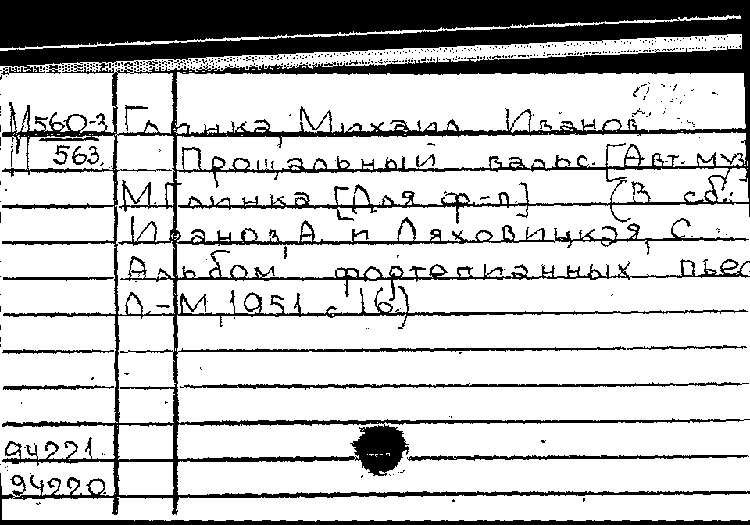 М 560-3 Глинка, Михаил Иванов
563. Прощальный вальс. [Авт. муз
М.Глинка [Для ф-п] (В сб.:
Иванов, А. и Ляховицкая, С.
Альбом фортепианных пьес
Л.-М, 1951 с 16.)
94221
94220